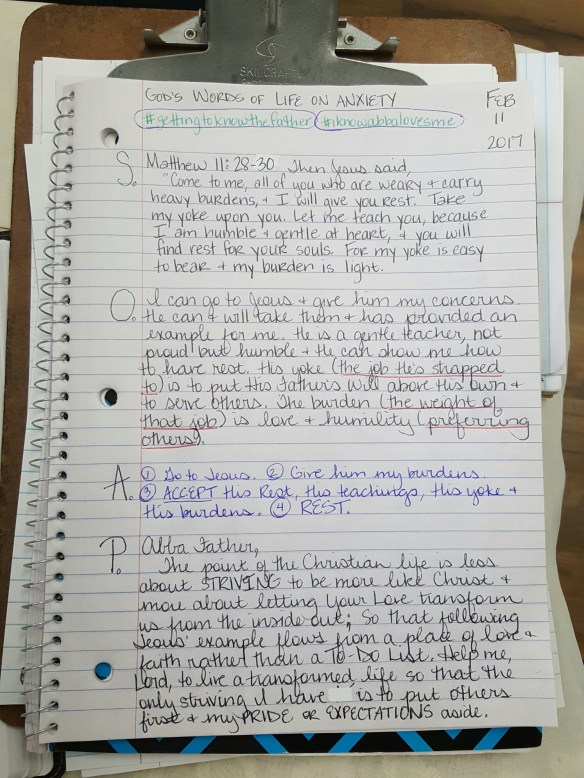 SKILCRAFT
GOD'S WORDS OF LIFE ON ANXIETY
#gettingtoknowthefather #iknowabbalovesme
FEB
11
2017
S. Matthew 11:28-30 Then Jesus said,
"Come to me, all of you who are weary + carry
heavy burdens, + I will give you rest. Take
my yoke upon you. Let me teach you, because
I am humble + gentle at heart, + you will
find rest for your souls. For my yoke is easy
to bear + my burden is light.
O. I can go to Jesus + give him my concerns.
He can + will take them + has provided an
example for me. He is a gentle teacher, not
proud but humble + He can show me how
to have rest. His yoke (the job He's strapped
to) is to put His Father's Will above His own +
to serve others. The burden (the weight of
that job) is love + humility (preferring
others).
A. ① Go to Jesus. ② Give him my burdens.
③ ACCEPT His Rest, His teachings, His yoke +
His burdens. ④ REST.
P. Abba Father,
The point of the Christian life is less
about STRIVING to be more like Christ +
more about letting Your Love transform
us from the inside out; So that following
Jesus' example flows from a place of love +
faith rather than a TO-DO LIST. Help me,
Lord, to live a transformed life so that the
only striving I have is to put others
first + my PRIDE OR EXPECTATIONS aside.